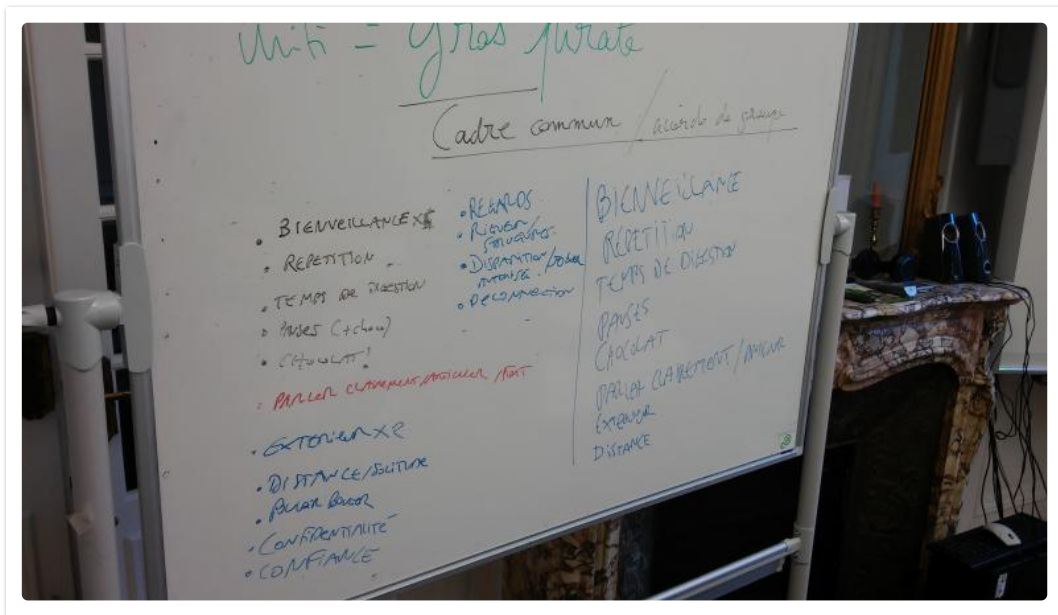 = gros pirate
Cadre commun / accords de groupe
• BIENVEILLANCE X5
• REPETITION
• TEMPS DE DIGESTION
• PAUSES (+chou)
• CHOCOLAT!
• PARLER CLAIREMENT/ARTICULER/FORT
• EXTERIEUR X2
• DISTANCE/SOLITUDE
• CONFIDENTIALITÉ
• CONFIANCE
• REGARDS
• RIGUEUR/
STRUCTURES
• DISPARITION/
• DECONNECTION
BIENVEILLANCE
RÉPÉTITION
TEMPS DE DIGESTION
PAUSES
CHOCOLAT
PARLER CLAIREMENT/
EXTERIEUR
DISTANCE